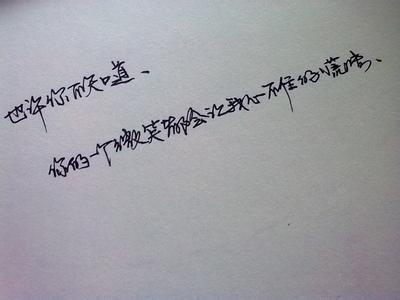 也许你不知道、
你的一个微笑都会让我心不住的慌、